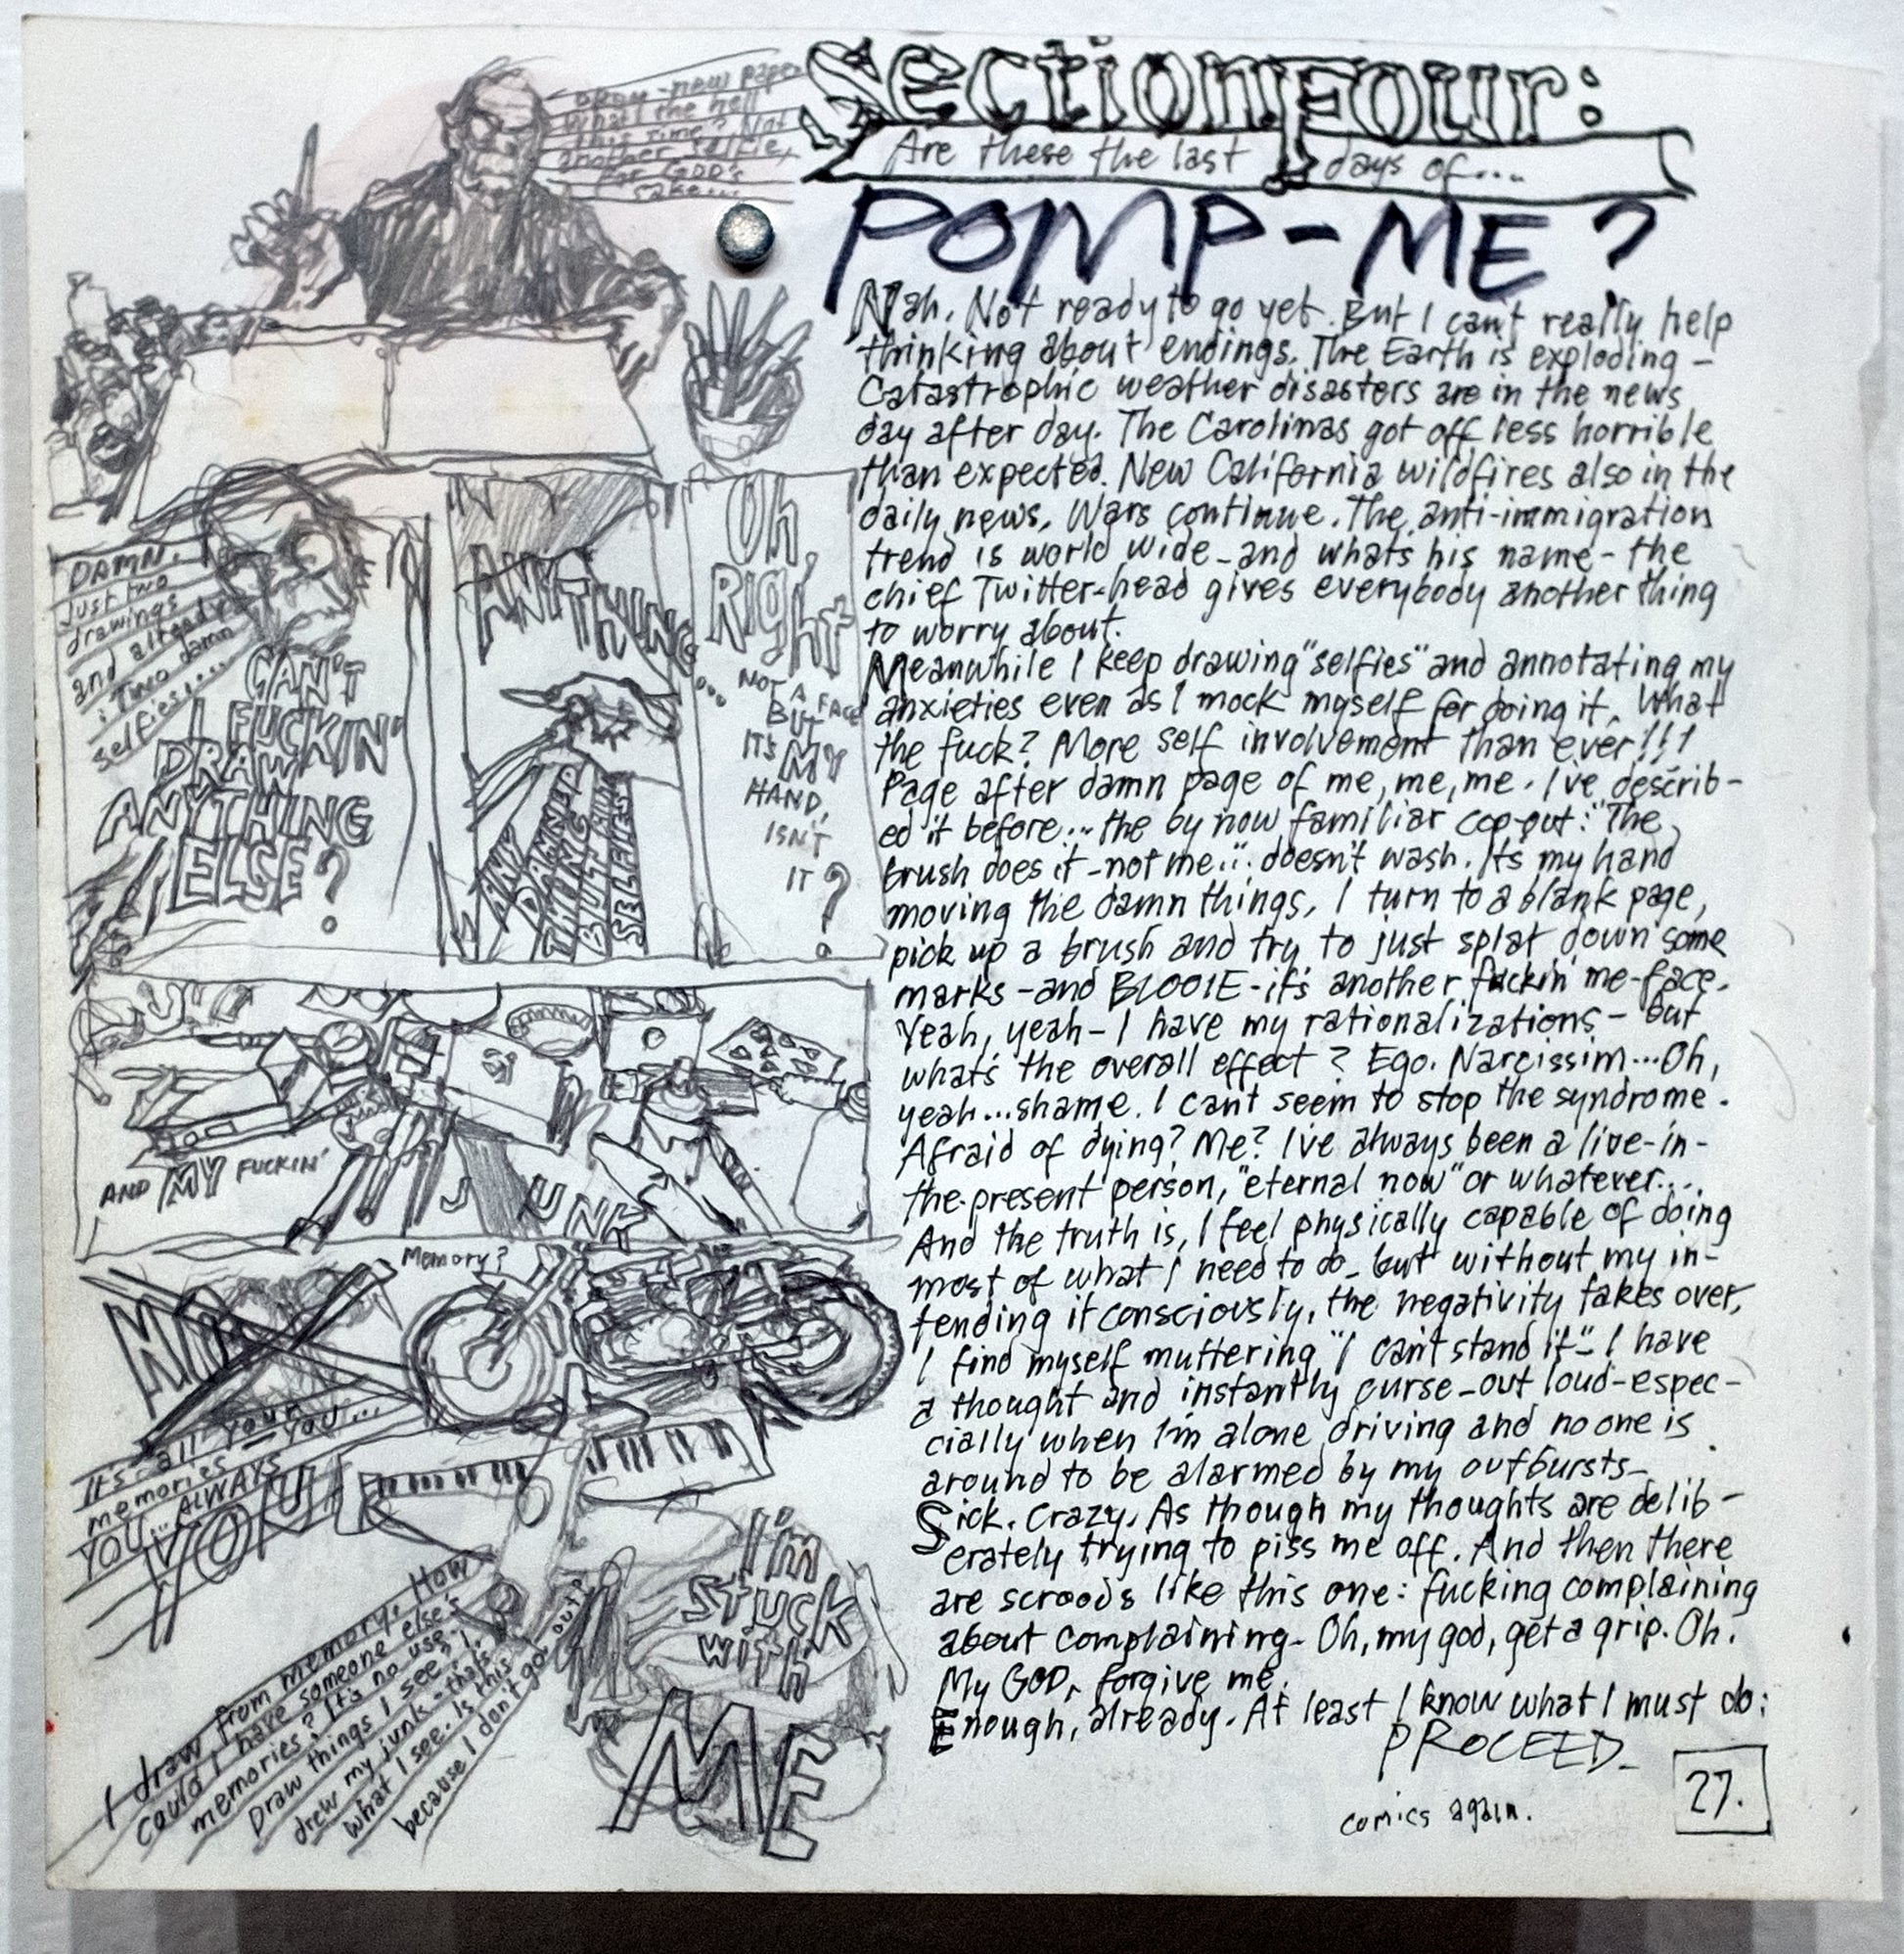 Section Four:
Are these the last days of...
POMP-ME?
Okay-new page.
What the hell
this time? Not
another selfie,
for GOD's
sake...
DAMN.
Just two
drawings
and already
Two damn
selfies....
CAN'T
I FUCKIN'
DRAW
ANYTHING
ELSE?
ANYTHING...
ANY
DAMNED
THING
BUT
SELFIES
Oh,
Right
NOT A FACE
BUT
IT'S MY
HAND,
ISN'T
IT?
AND MY FUCKIN'
JUNK
Memory?
NO
It's all your
memories - you...
YOU... ALWAYS
YOU!
I draw from memory. How
could I have someone else's
memories? It's no use.
Draw things I see? I
drew my junk - that's
what I see. Is this
because I don't go out?
I'm
STUCK
WITH
ME
Nah. Not ready to go yet. But I can't really help
thinking about endings. The Earth is exploding -
Catastrophic weather disasters are in the news
day after day. The Carolinas got off less horrible
than expected. New California wildfires also in the
daily news. Wars continue. The anti-immigration
trend is world wide - and whats his name - the
chief Twitter-head gives everybody another thing
to worry about.
Meanwhile I keep drawing "selfies" and annotating my
anxieties even as I mock myself for doing it. What
the fuck? More self involvement than ever!!!
Page after damn page of me, me, me. I've describ-
ed it before... the by now familiar cop-out: "The
brush does it - not me..." doesn't wash. It's my hand
moving the damn things. I turn to a blank page,
pick up a brush and try to just splat down some
marks - and BLOOIE - it's another fuckin' me-face.
Yeah, yeah - I have my rationalizations - but
what's the overall effect? Ego. Narcissim... Oh,
yeah... shame. I can't seem to stop the syndrome.
Afraid of dying? Me? I've always been a live-in-
the-present person, "eternal now" or whatever....
And the truth is, I feel physically capable of doing
most of what I need to do - but without my in-
tending it consciously, the negativity takes over,
I find myself muttering "I can't stand it" - I have
a thought and instantly curse - out loud - espec-
cially when I'm alone driving and no one is
around to be alarmed by my outbursts -
Sick. Crazy. As though my thoughts are delib-
erately trying to piss me off. And then there
are scroods like this one: fucking complaining
about complaining - Oh, my god, get a grip. Oh.
My GOD, forgive me.
Enough, already. At least I know what I must do:
PROCEED -
comics again.
27.